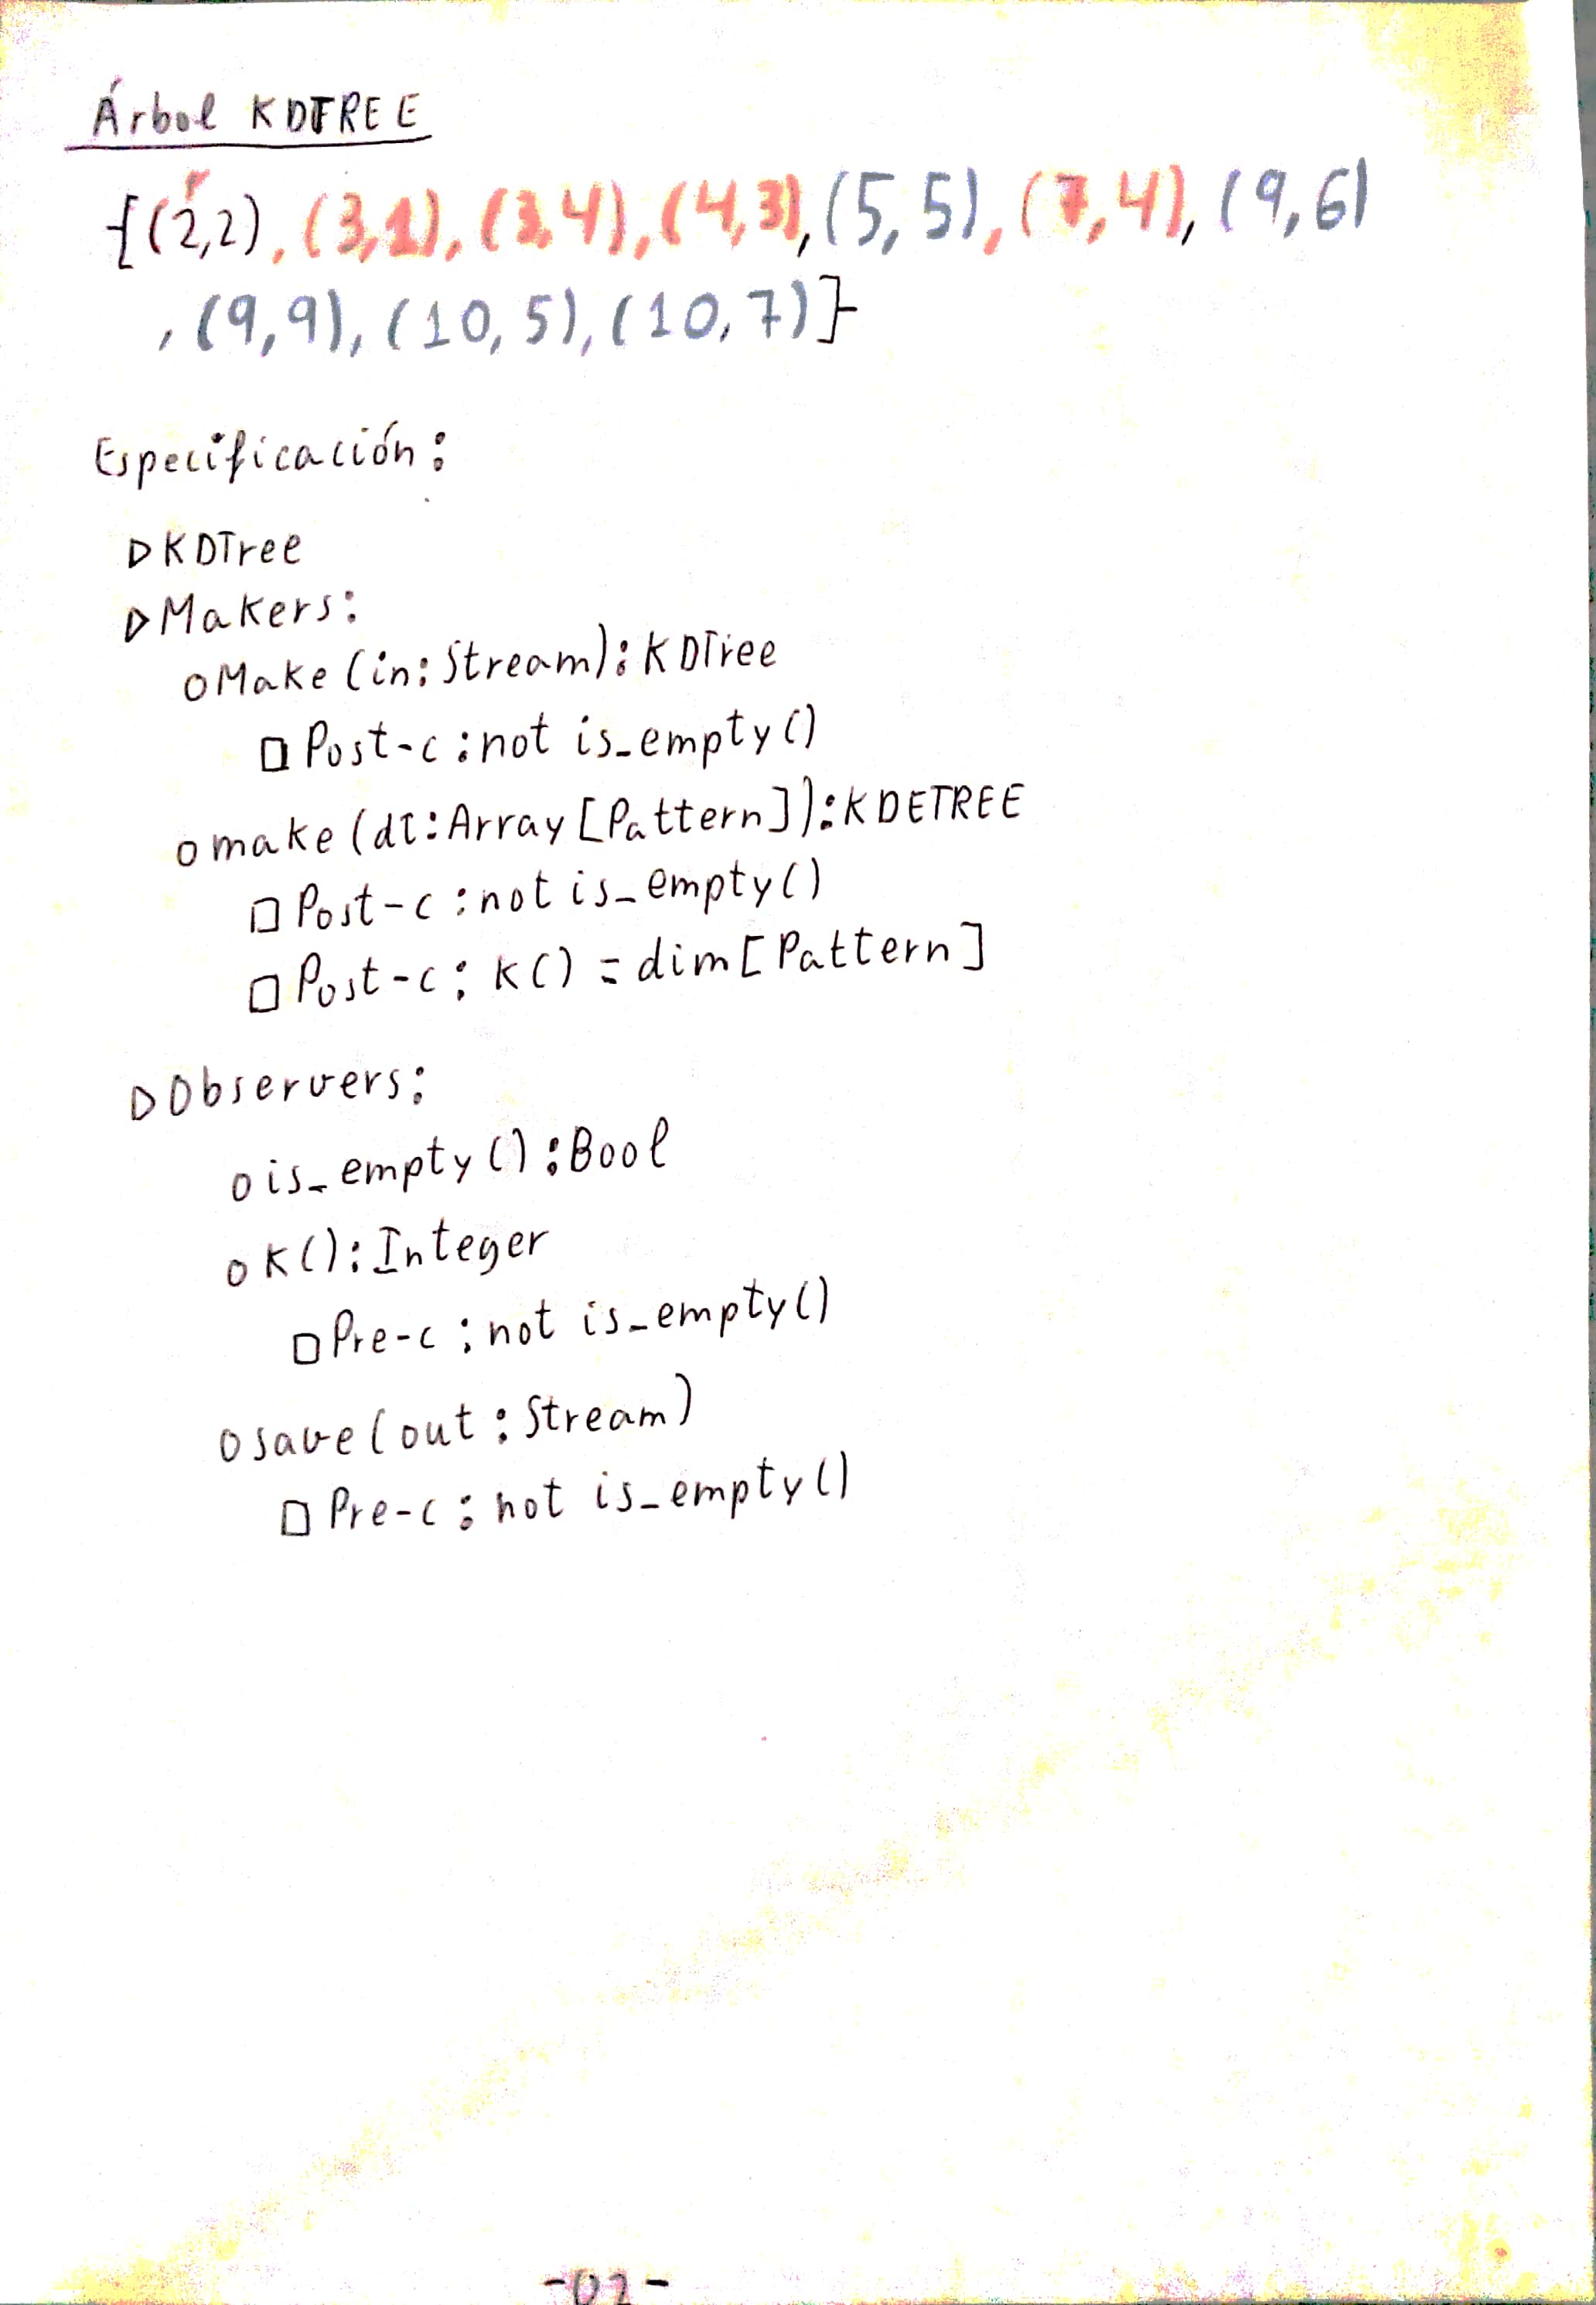 Árbol KDTREE
{(2,2), (3,1), (3,4), (4,3), (5,5), (7,4), (9,6)
, (9,9), (10,5), (10,7)}
Especificación:
▷ KDTree
▷ Makers:
○ Make (in: Stream): KDTree
□ Post-c: not is_empty()
○ make (dt: Array [Pattern]): KDETREE
□ Post-c: not is_empty()
□ Post-c: K() = dim[Pattern]
▷ Observers:
○ is_empty(): Bool
○ K(): Integer
□ Pre-c: not is_empty()
○ save (out: Stream)
□ Pre-c: not is_empty()